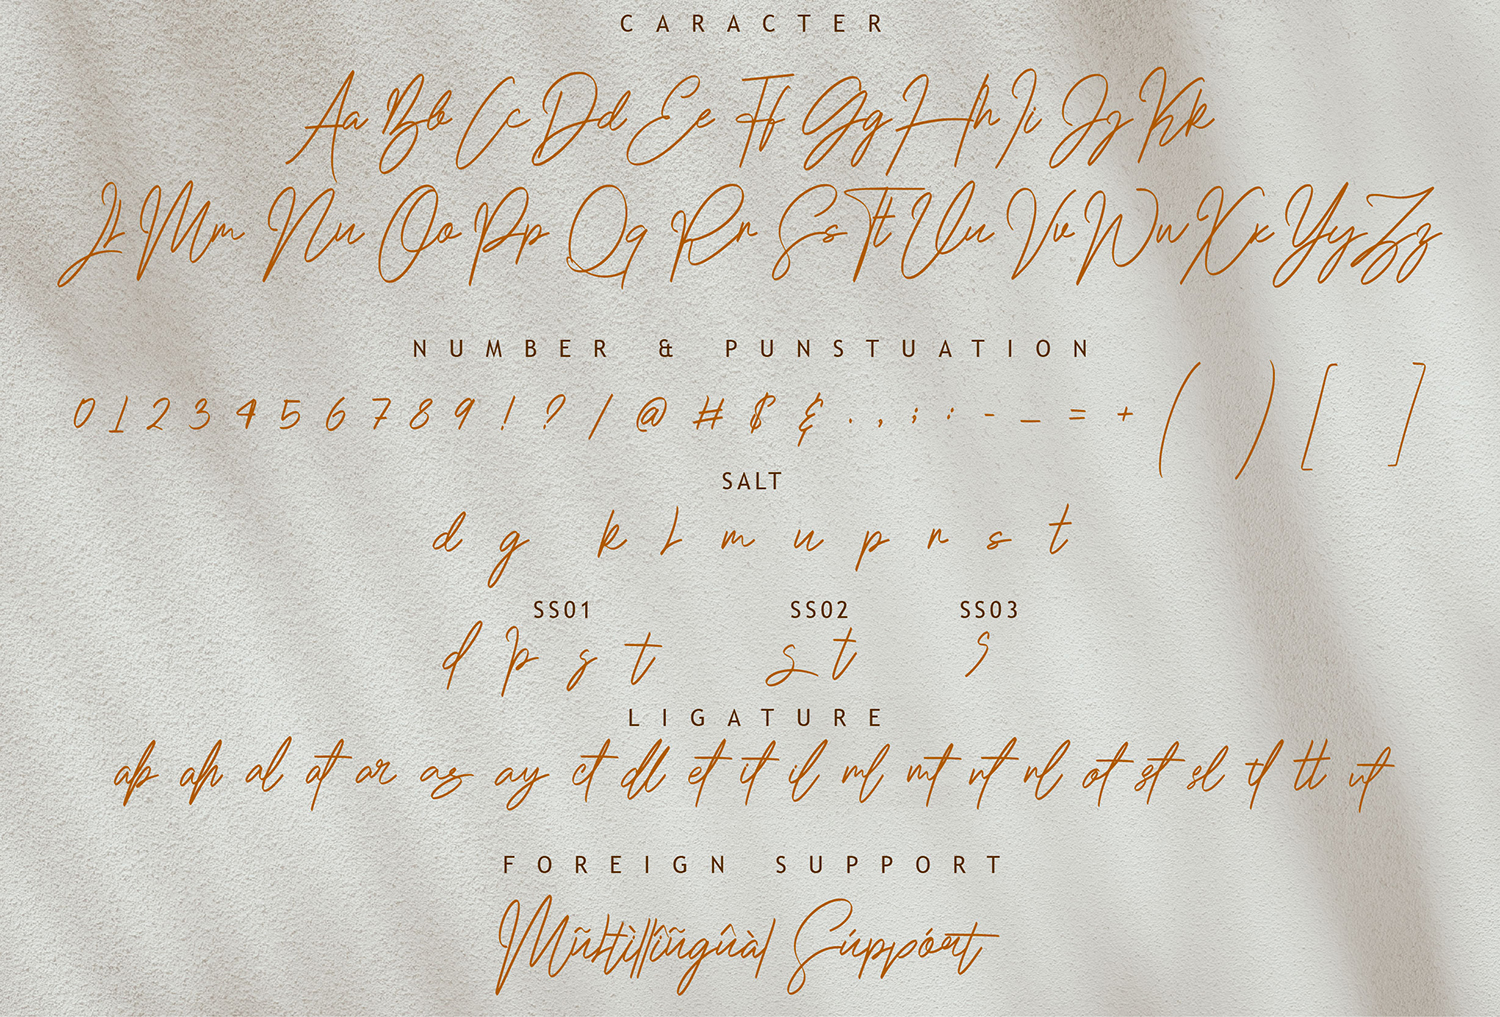 CARACTER
Aa Bb Cc Dd Ee Ff Gg Hh Ii Jj Kk
Ll Mm Nn Oo Pp Qq Rr Ss Tt Uu Vv Ww Xx Yy Zz
NUMBER & PUNSTUATION
0 1 2 3 4 5 6 7 8 9 ! ? / @ # $ & . , ; : - _ = + ( ) [ ]
SALT
d g k l m u p r s t
SS01 SS02 SS03
d p s t s t s
LIGATURE
ab ah al at ar as ay ct dl et it il ml mt nt nl ot st sl tl tt ut
FOREIGN SUPPORT
Mũltìllîñgûàl Súppórt